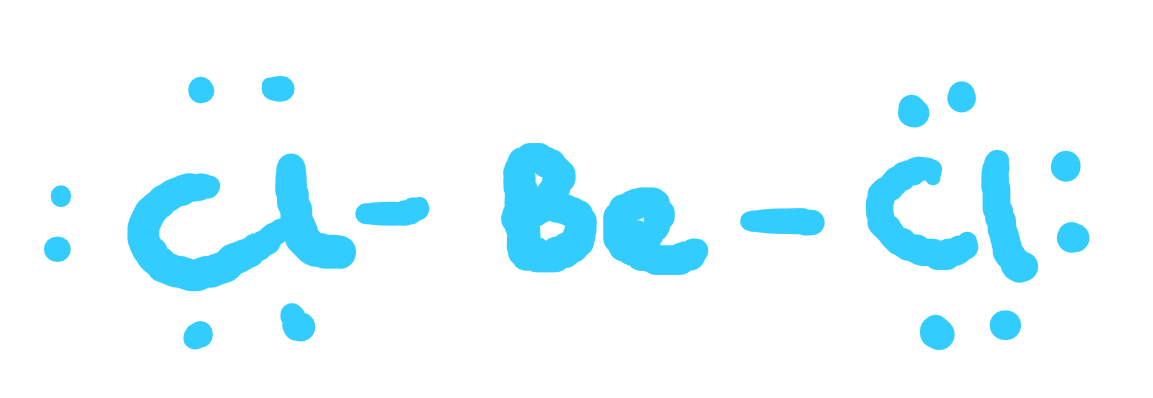 :Cl - Be - Cl: